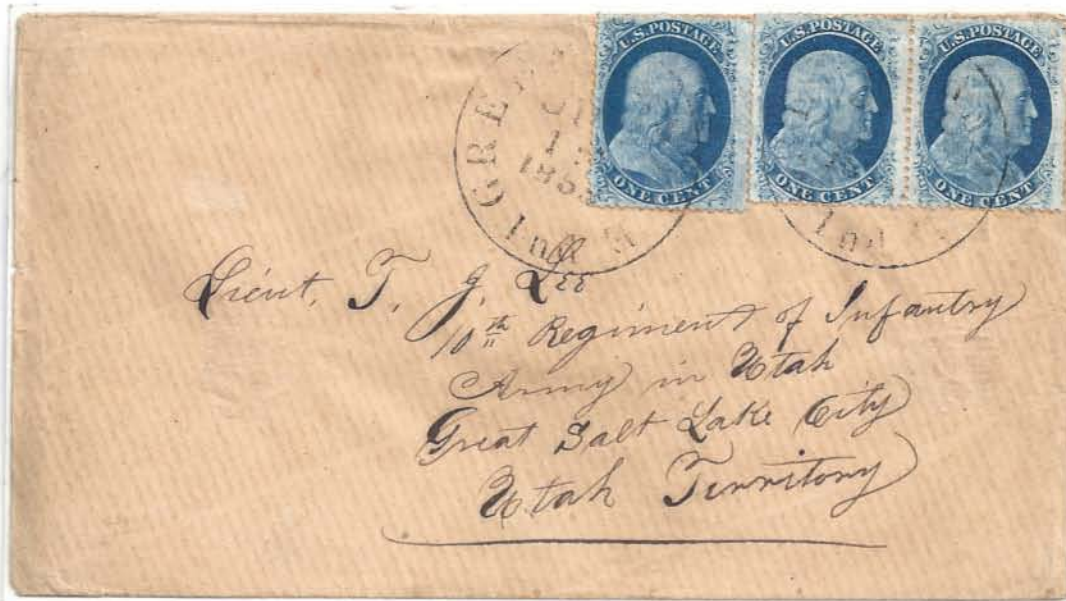 U.S.POSTAGE U.S.POSTAGE U.S.POSTAGE
ONE CENT ONE CENT ONE CENT
Lieut. T. J. Lee
10th Regiment of Infantry
Army in Utah
Great Salt Lake City
Utah Territory